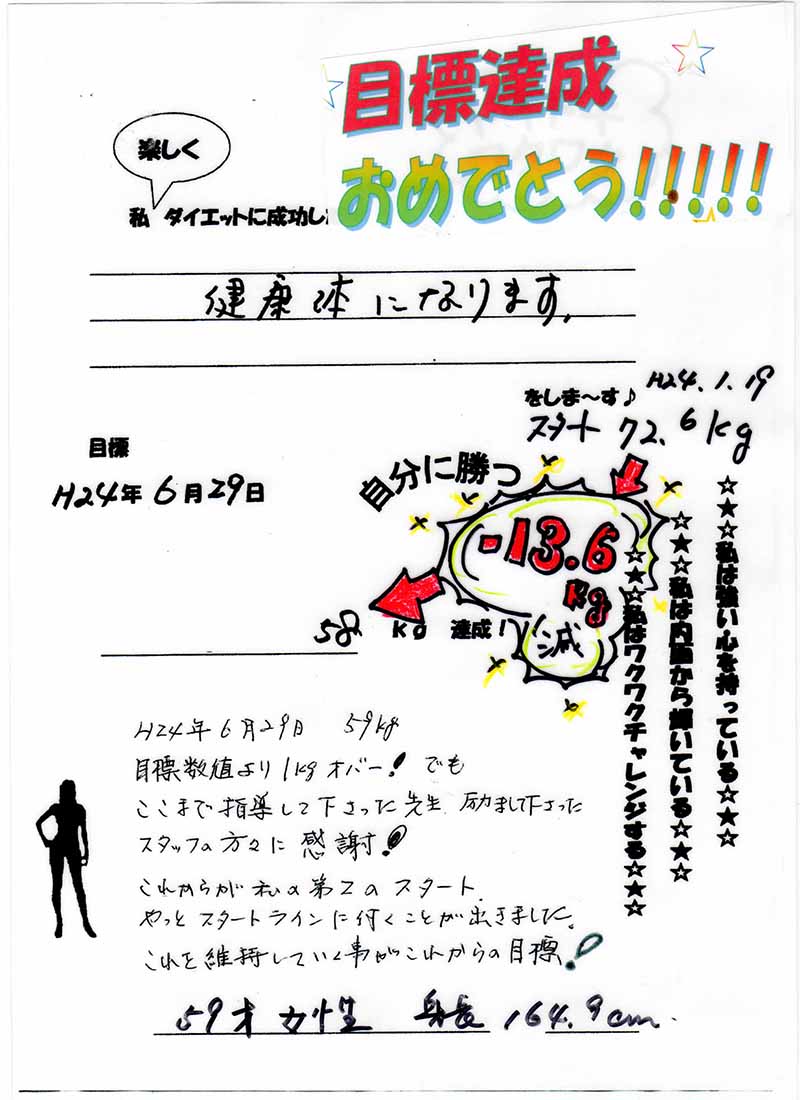 目標達成
おめでとう!!!!!
楽しく
私 ダイエットに成功し
健康体になります。
H24.1.19
をしま〜す♪
スタート 72.6kg
目標
H24年6月29日
自分に勝つ
-13.6
kg
減
58 kg 達成!
☆★☆私は強い心を持っている☆★☆
☆★☆私は内面から輝いている☆★☆
☆★☆私はワクワクチャレンジする☆★☆
H24年6月29日 59kg
目標数値より1kgオバー! でも
ここまで指導して下さった先生、励まして下さった
スタッフの方々に感謝!
これからが私の第2のスタート、
やっとスタートラインに付くことが出きました。
これを維持していく事がこれからの目標!
59才 女性 身長 164.9cm.